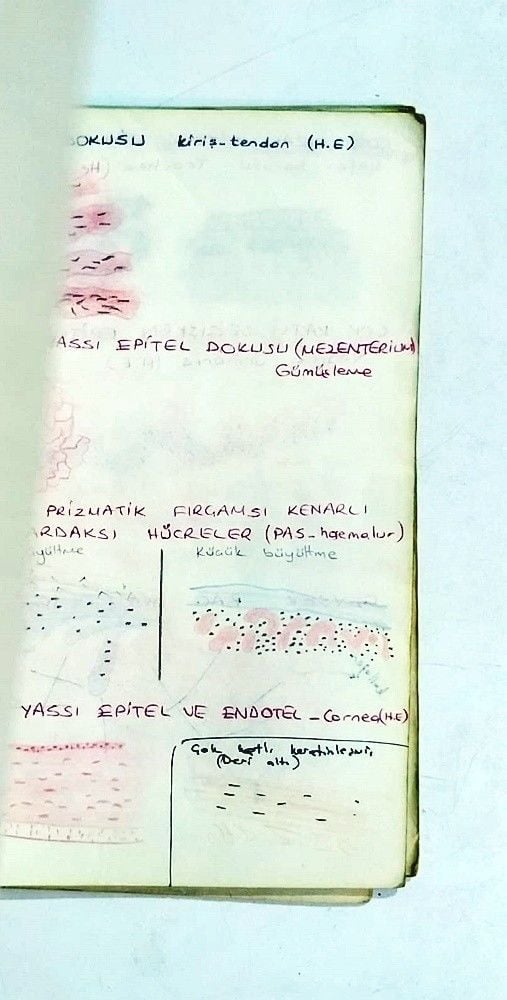 DOKUSU kiriş-tendon (H.E)
ASSI EPİTEL DOKUSU (MEZENTERİUM)
Gümüşleme
PRİZMATİK FIRÇAMSI KENARLI
ARDAKSI HÜCRELER (PAS-haemalun)
yültme
Küçük büyültme
YASSI EPİTEL VE ENDOTEL - Cornea (H.E)
Çok katlı
(Deri altı)